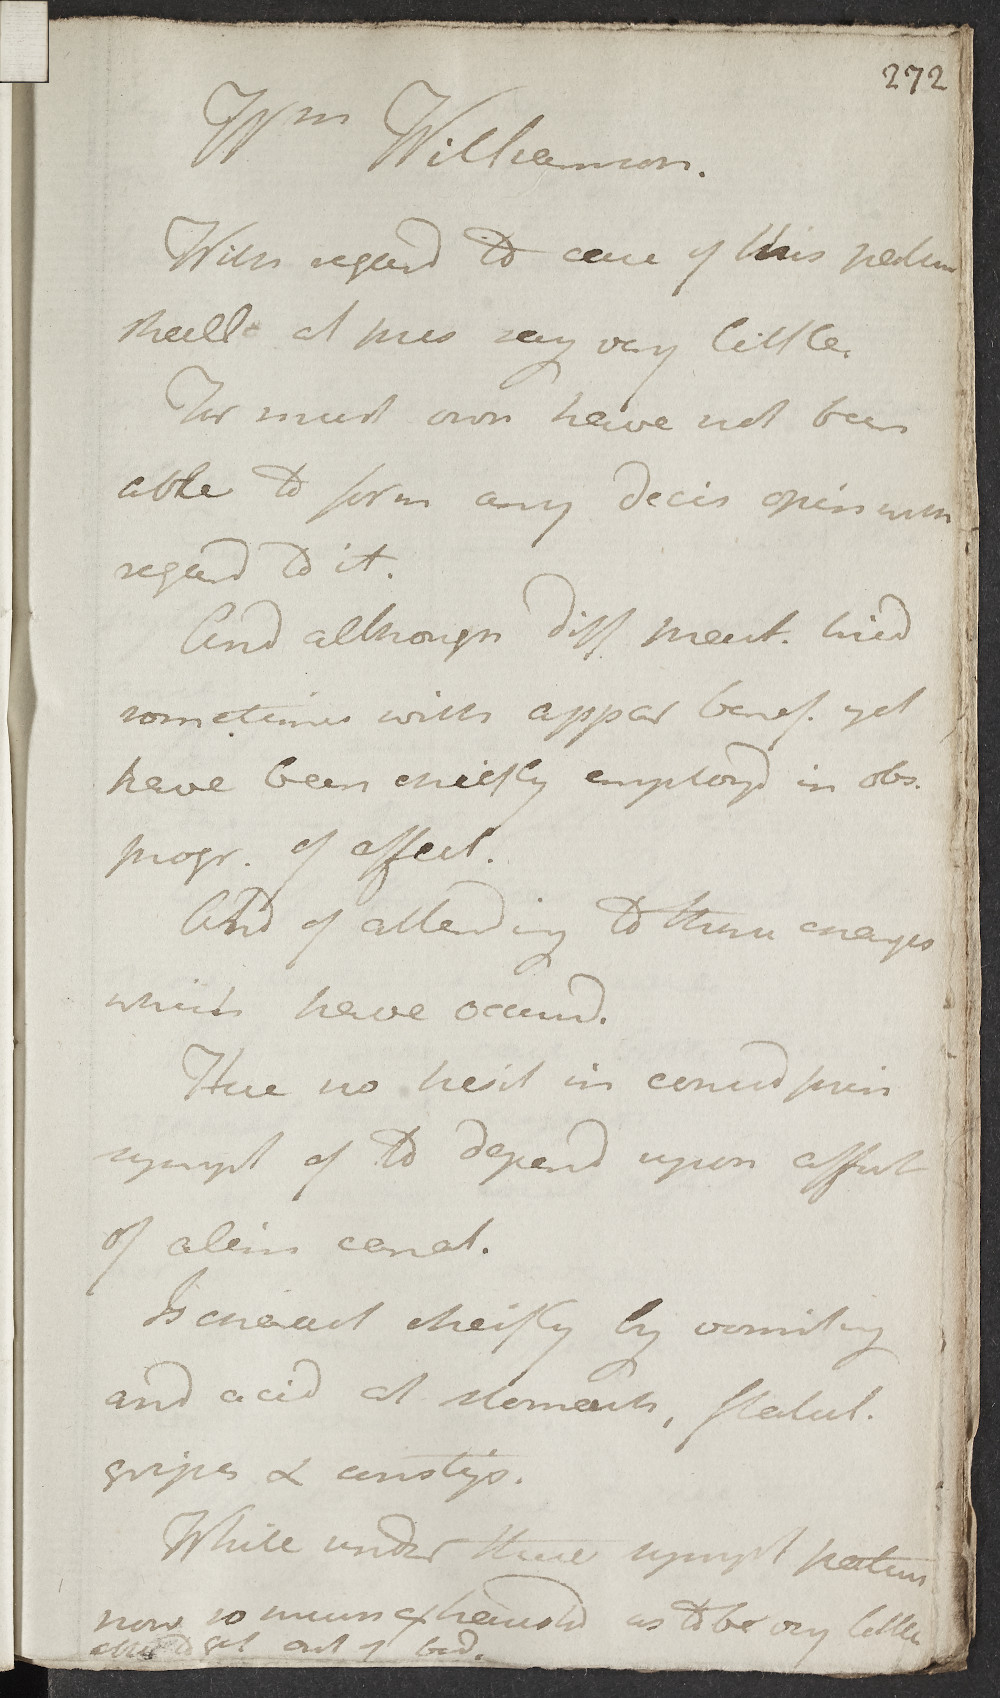 272
Wm Williamson.
With regard to case of this patien
shall at pres say very little.
For must own have not been
able to form any decis opin with
regard to it.
And although diff meut. tried
sometimes with appar benef. yet
have been chiefly employd in obs.
progr. of affect.
And of attending to these changes
which have occurrd.
Have no hesit in considr prin
sympt of to depend upon affect
of alim canal.
Is charact cheifly by vomiting
and acid at stomach, flatul.
gripes & constip.
While under these sympt patien
now so much exhausted as to be very little
able to get out of bed.